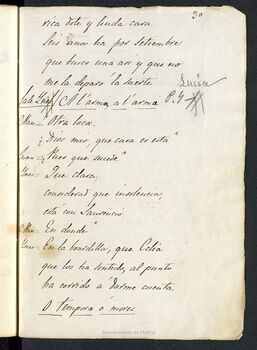 30
rica dote y linda cara.
Seis años ha por setiembre
que busco una asi y que no
me la deparó la suerte.
Luisa
Sale Ynes Al arma, al arma P.Y
Man= Otra loca.
¡Dios mio, que casa es esta"
Juan= Pues que suede"
Ynes= Tue clara,
considerad que insolencia,
está con Laurencio
Man= En donde"
Ynes= En la bovedilla, que Celia
que los ha sentido, al punto
ha corrido á darme cuenta.
O tempora ó mores.
Ayuntamiento de Madrid